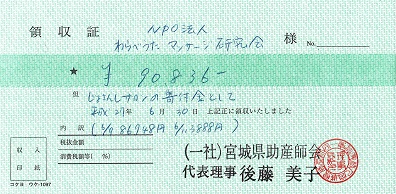 領収証
NPO法人
わらべうた マッサージ研究会 様 No.
★ ¥90836-
じょさんしサロンの寄付金として
平成27年6月30日 上記正に領収いたしました
内訳 (6/9 86948円 6/1 3888円)
税抜金額
消費税額等(%)
収入
印紙
コクヨ ウケ-1097
(一社)宮城県助産師会
代表理事 後藤 美子